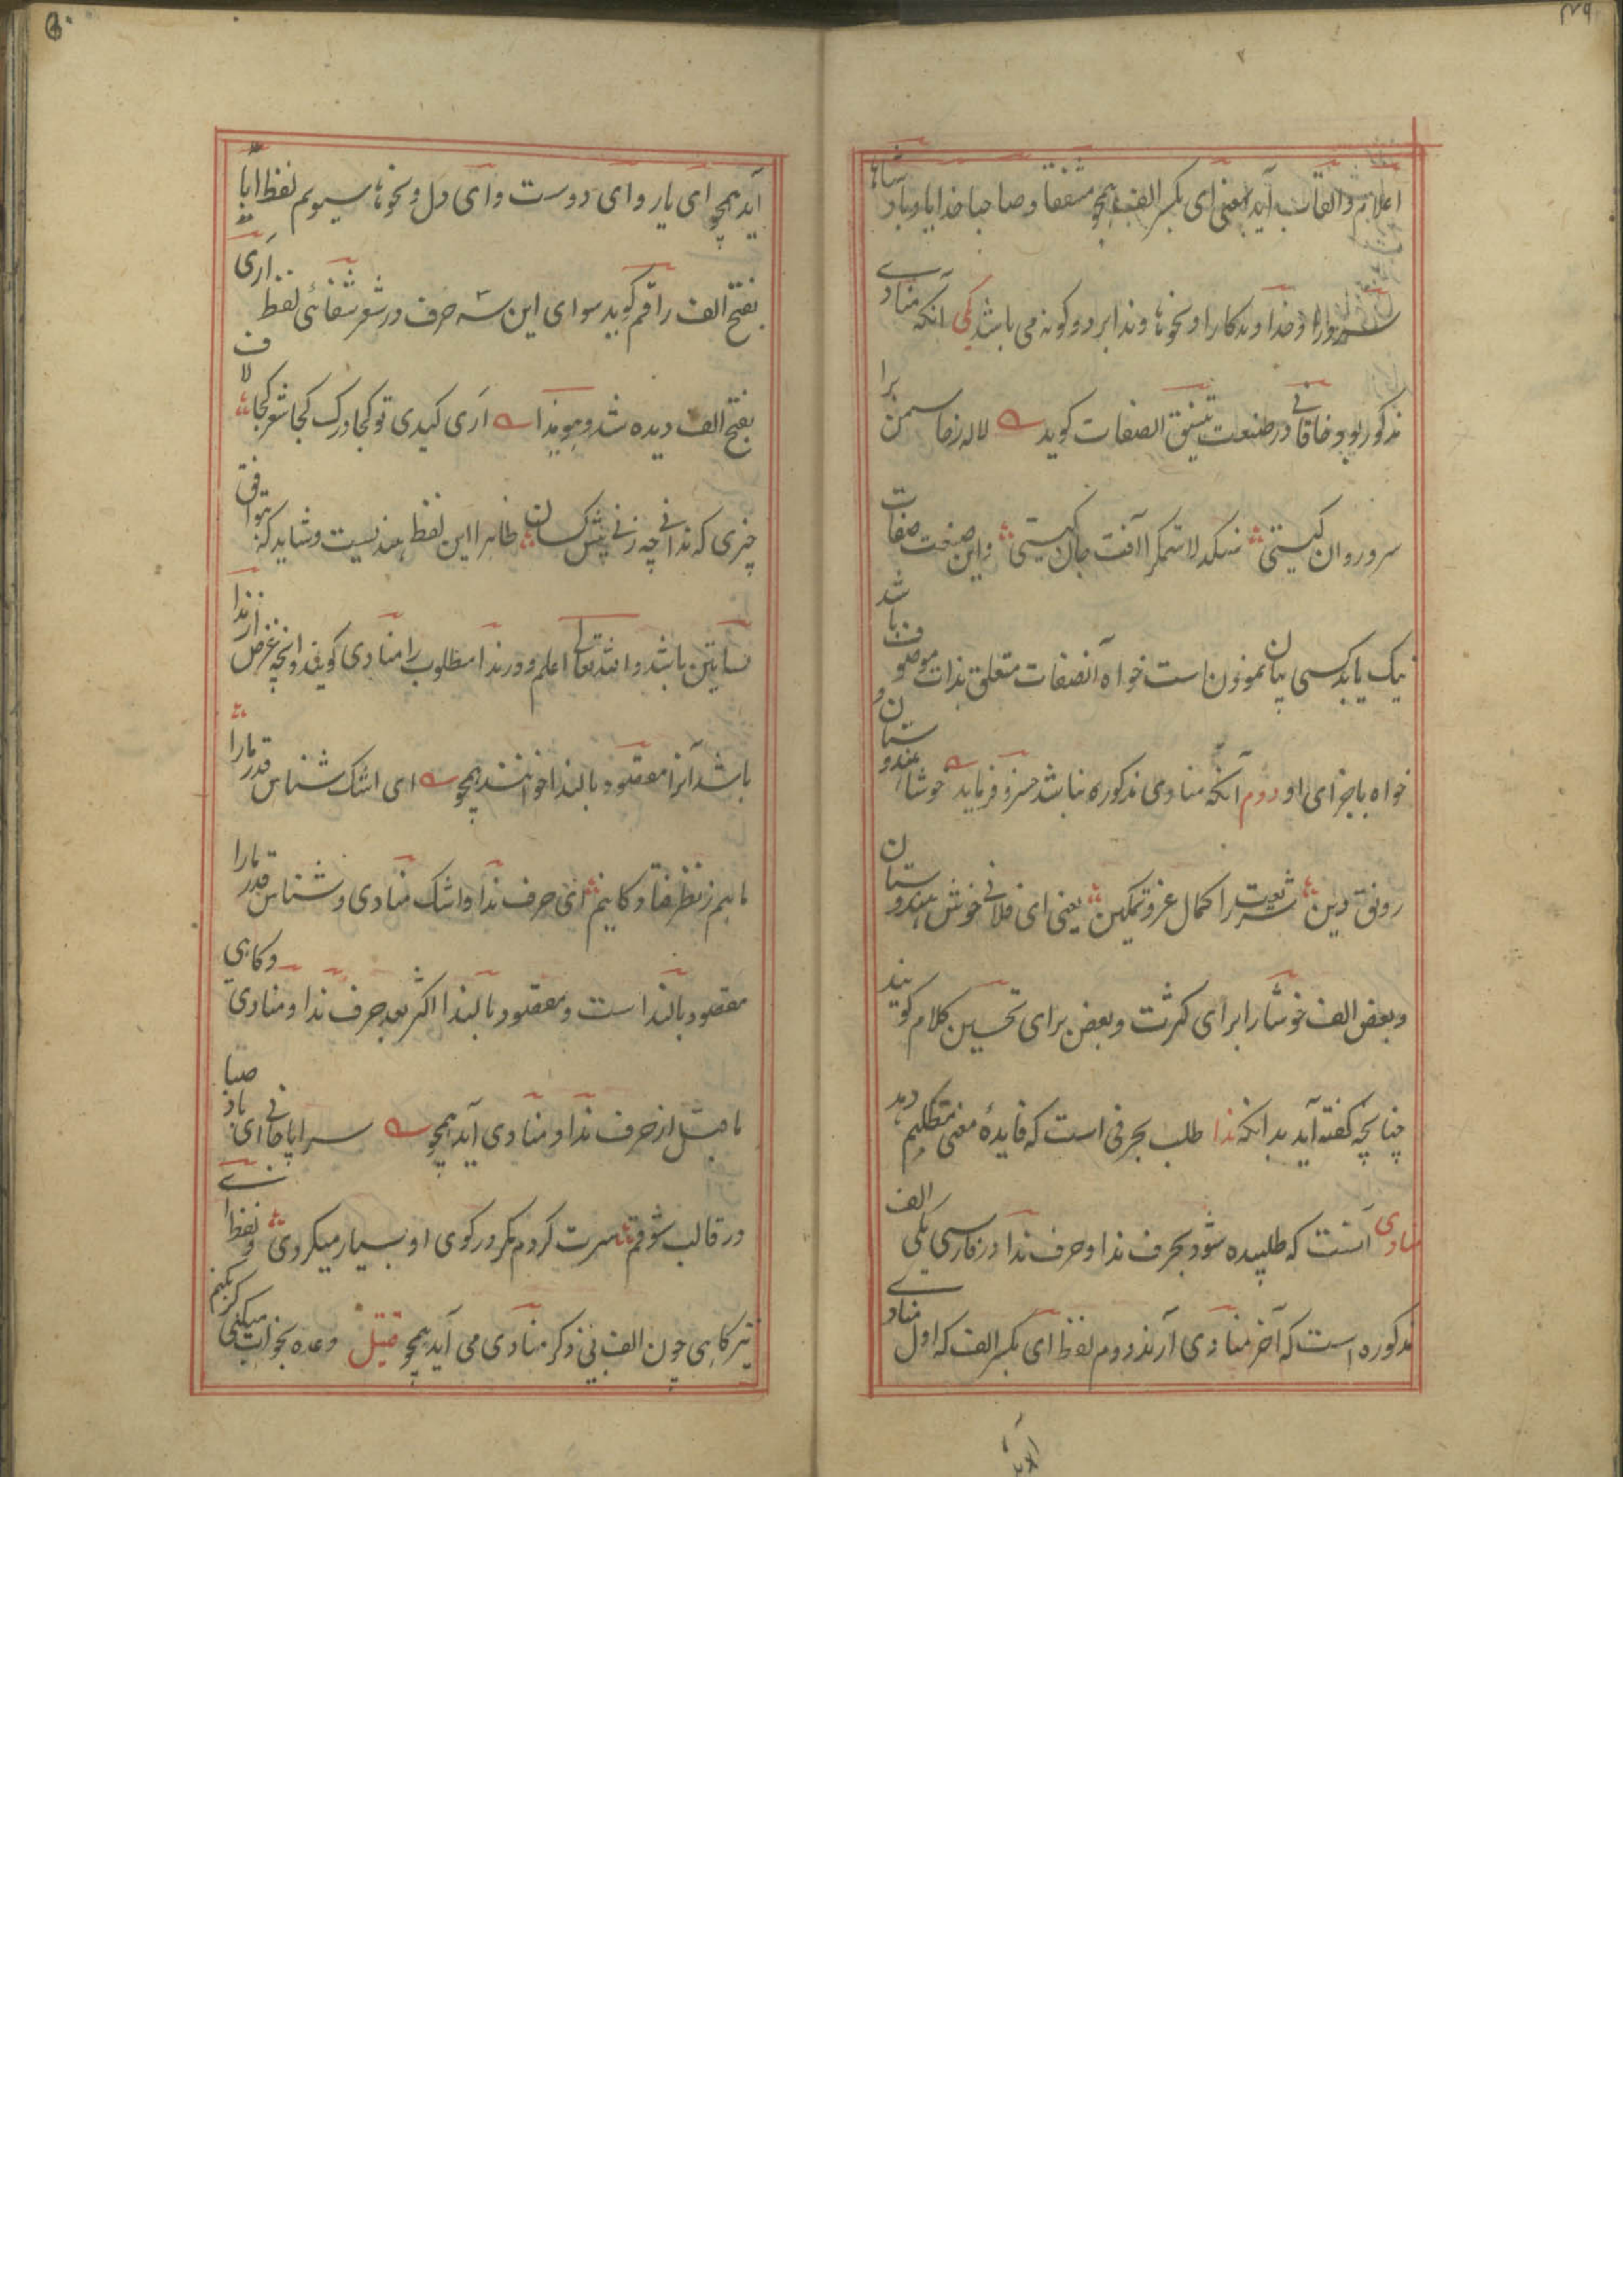 ۴۹
اعلام و القاب آید بمعنی ای بکسر الف همچو مشفقا و صاحبا خدایا و بادشاها
سرورا و خداوندگارا و نحوها و ندا بر دو گونه می باشد یکی آنکه منادے
مذکور بود خاقانی در صنعت تنسیق الصفات گوید لاله رخا سمن برا
سرو روان کیستی سنگدلا ستمگرا آفت جان کیستی و این صنعت صفات
نیک یا بد کسی بیان نمودن است خواه آنصفات متعلق بذات موصوف باشد
خواه باجزای او دوم آنکه منادی مذکور نباشد خسرو فرماید خوشا هندوستان و
رونق دین شریعت را کمال عز و تمکین یعنی ای فلانی خوش هندوستان
و بعض الف خوشا را برای کثرت و بعض برای تحسین کلام گویند
چنانچه گفته آید بدانکه ندا طلب بحرفی است که فایدهٔ معنی متکلم دهد
منادی آنست که طلبیده شود بحرف ندا و حرف ندا در فارسی یکی الف
مذکوره است که آخر منادی آرند دوم لفظ ای بکسر الف که اول منادے
آید همچو ای یار و ای دوست و ای دل و نحوها سیوم لفظ ایا
بفتح الف راقم گوید سوای این سه حرف در شعر شفائی لفظ اری
بفتح الف دیده شد و هو هذا اری کیدی تو کجا درک کجا شعر کجا لاف
چیزی که ندانی چه زنی پیش کسان ظاهرا این لفظ هند نیست و شاید که توافق
لسانین باشد و الله تعالی اعلم و در ندا مطلوب را منادی گویند و آنچه غرض از ندا
باشد آنرا مقصود بالندا خوانند همچو ای اشک شناس قدر ما را
ما هم ز نظر فتادگانیم ای حرف ندا و اشک منادی و شناس قدر ما را
مقصود بالندا است و مقصود بالندا اکثر بعد حرف ندا و منادی و گاهی
ماقبل از حرف ندا و منادی آید همچو سراپا جانی ای باد صبا
در قالب شوقم سرت گردم مگر در کوی او بسیار میگردی و لفظ ا
نیز گاهی چون الف بی ذکر منادی می آید همچو قتیل وعده بخواب میکنی